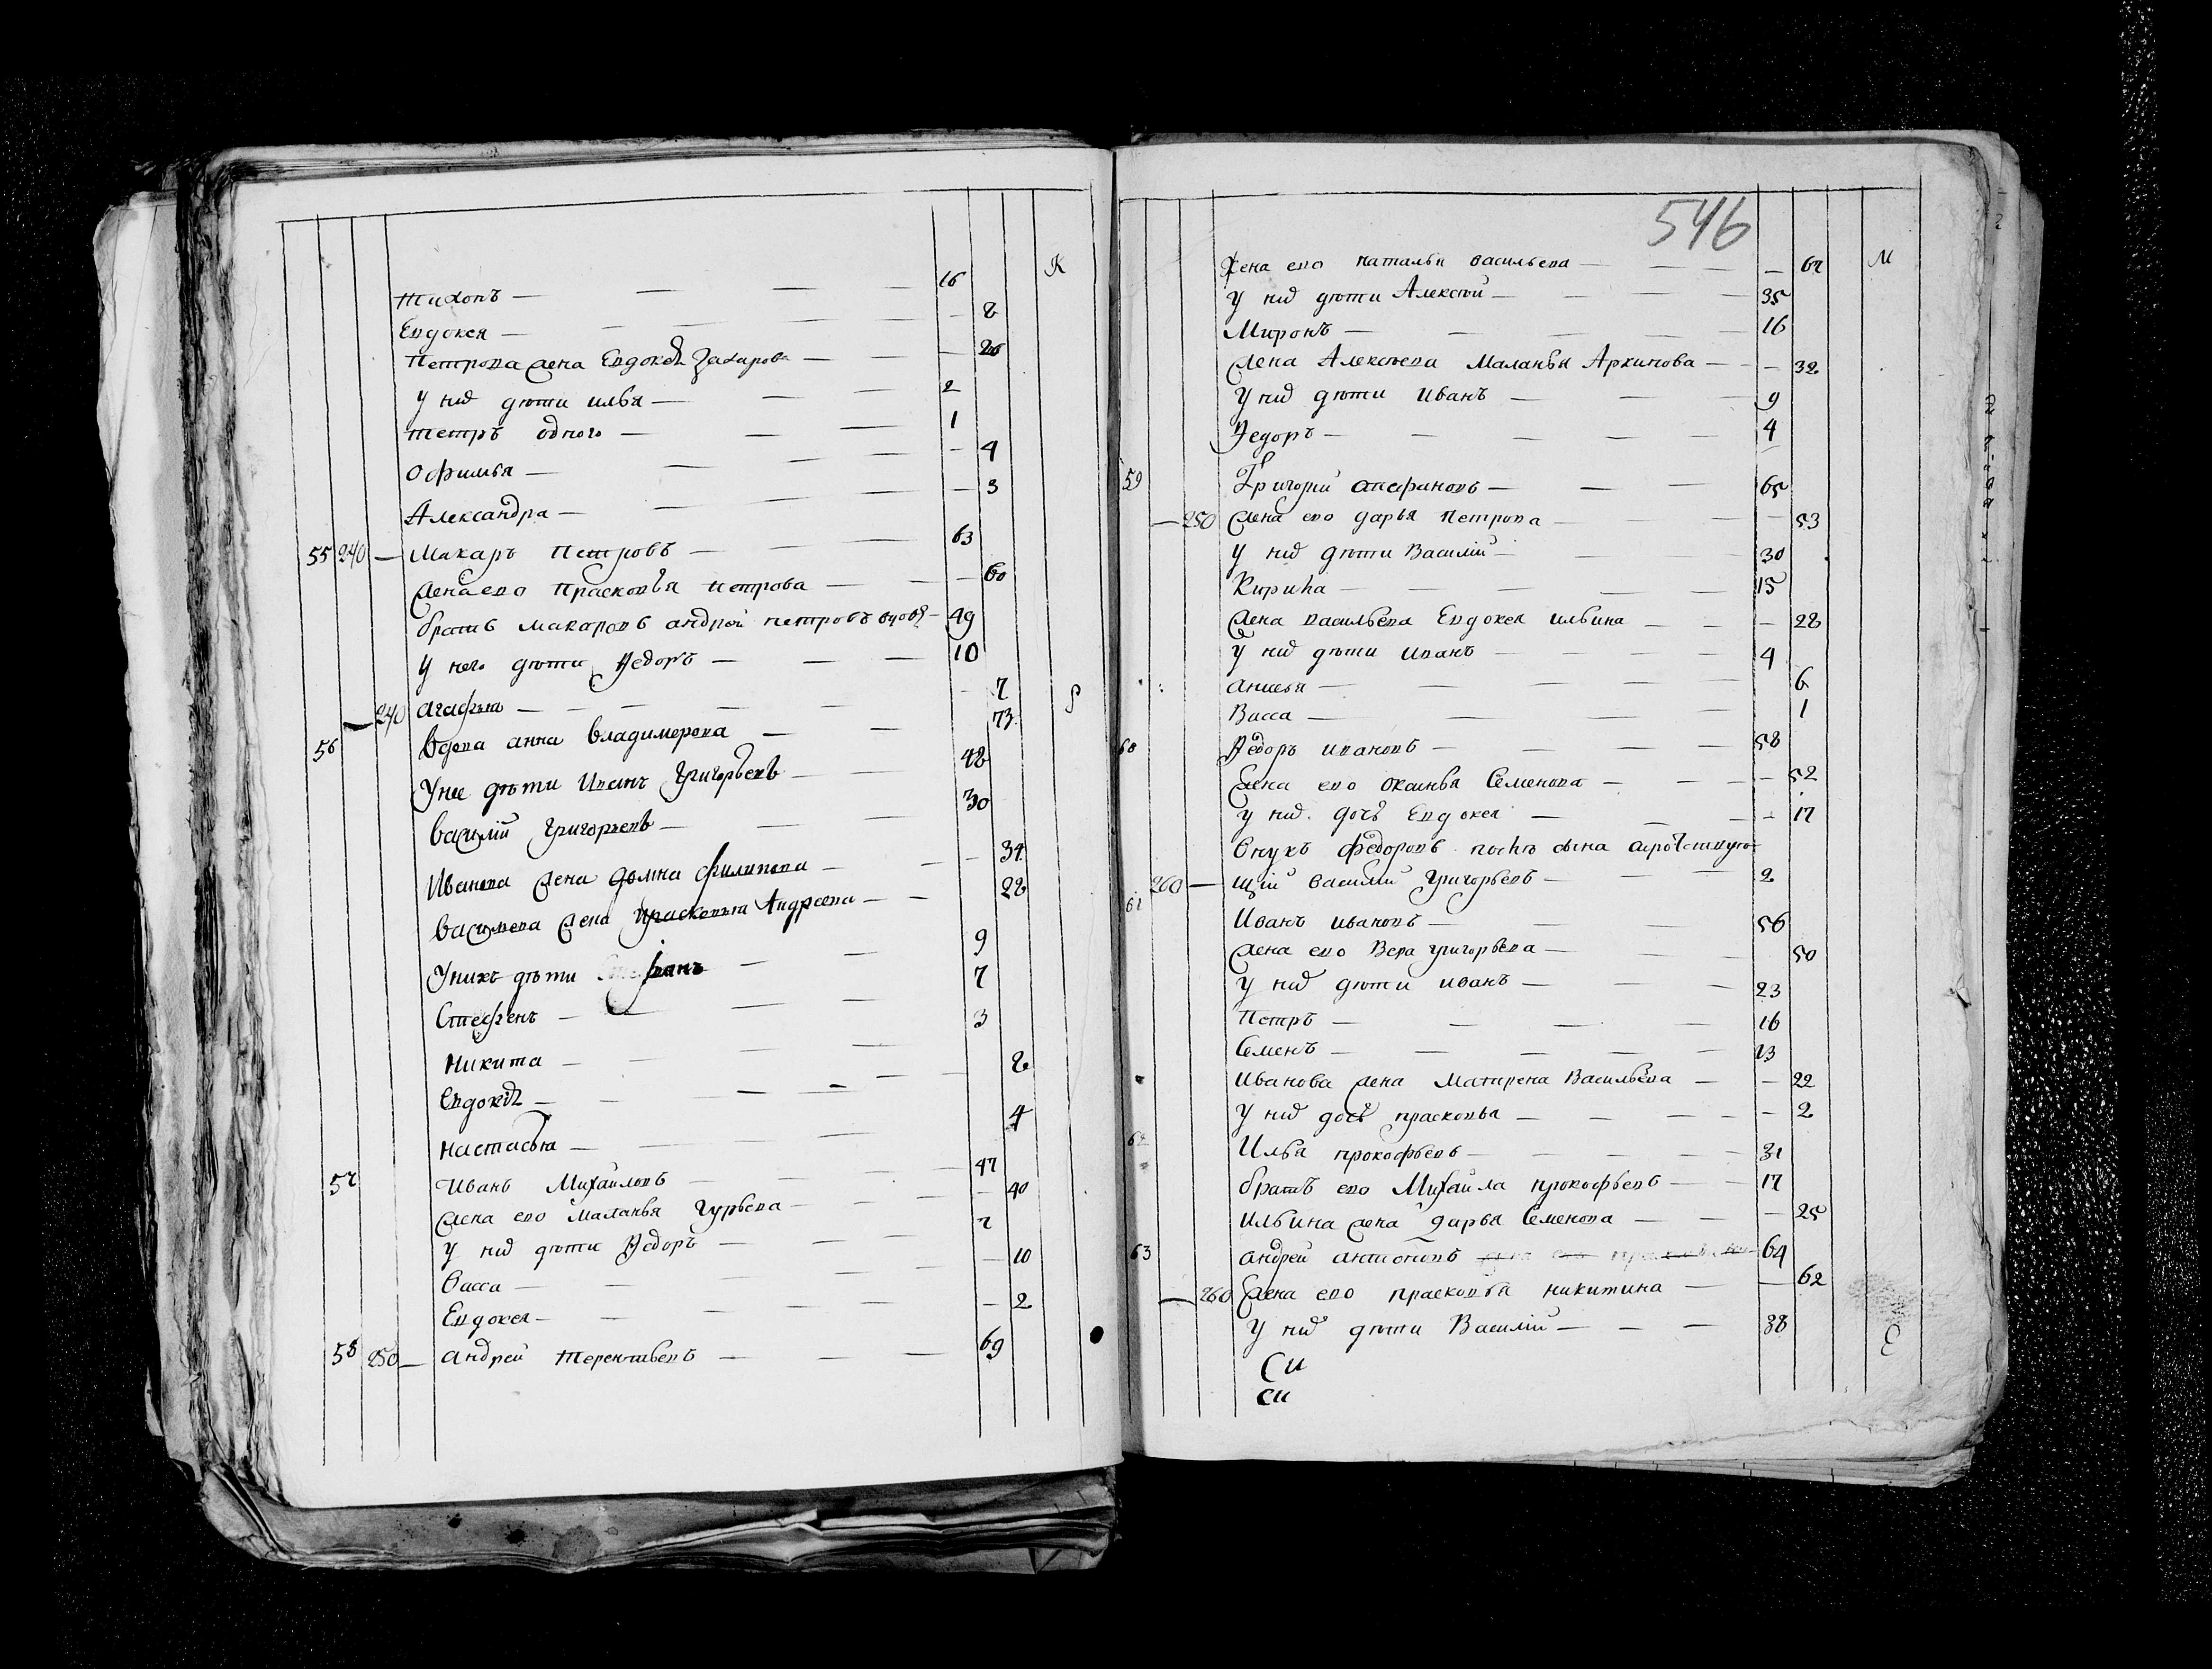 К
Тихонъ — 16
Евдокея — 8
Петрова жена Евдокея Захарова — 26
У них дѣти Илья — 2
Петръ одного — 1
Офимья — 4
Александра — 3
55 240 — Макаръ Петровъ — 63
Жена ево Прасковья Петрова — 60
братъ Макаровъ Андрей Петровъ вдовъ — 49
У него дѣти Федоръ — 10
— 240 Агафья — 7
56 Вдова Анна Владимерова — 73
У нее дѣти Иванъ Григорьевъ — 48
Василий Григорьевъ — 30
Иванова жена Домна Филипова — 34
Васильева жена Прасковья Андреева — 28
У них дѣти — 9
Стефенъ — 7
Никита — 3
Евдокея — 8
Настасья — 4
57 Иванъ Михайловъ — 47
Жена ево Маланья Гурьева — 40
У них дѣти Федоръ — 7
Васса — 10
Евдокея — 2
58 250 — Андрей Терентьевъ — 69
546
Жена ево Наталья Васильева — 67 М
У них дѣти Алексей — 35
Миронъ — 16
Жена Алексеева Маланья Архипова — 32
У них дѣти Иванъ — 9
Федоръ — 4
59 Григорий — 65
— 250 Жена ево Дарья Петрова — 53
У них дѣти Василий — 30
Кирила — 15
Жена Васильева Евдокея Ильина — 28
У них дѣти Иванъ — 4
Анисья — 6
Васса — 1
60 Федоръ Ивановъ — 58
Жена ево Оксинья Семенова — 52
У них дочь Евдокея — 17
Внукъ Федоровъ после сына
260 — щий Василий Григорьевъ — 2
61 Иванъ Ивановъ — 56
Жена ево Вера Григорьева — 50
У них дѣти Иванъ — 23
Петръ — 16
Семенъ — 13
Иванова жена Матирена Васильева — 22
У них дочь Прасковья — 2
62 Илья Прокофьевъ — 31
братъ ево Михайла Прокофьевъ — 17
Ильина жена Дарья Семенова — 25
63 Андрей Антоновъ — 64
— 260 Жена ево Прасковья Никитина — 62
У них дѣти Василий — 38
Си
си